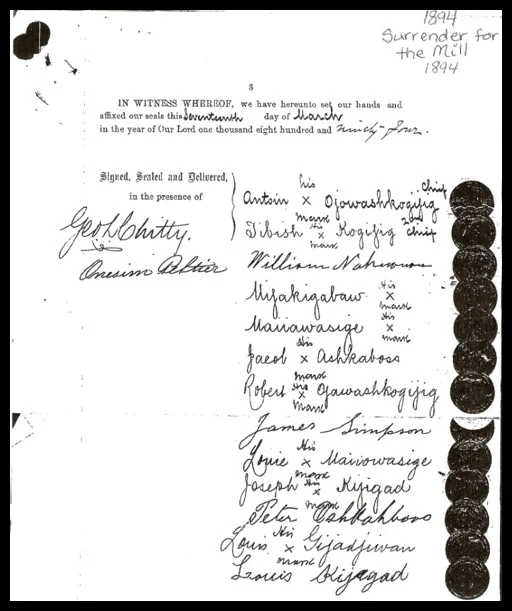 1894
Surrender for
the Mill
1894
3
IN WITNESS WHEREOF, we have hereunto set our hands and
affixed our seals this Seventeenth day of March
in the year of Our Lord one thousand eight hundred and ninety-four.
Signed, Sealed and Delivered,
in the presence of
Geo L Chitty.
Onesim Peltier
his
Antoin x Ojawashkogijig chief
mark
Tibish x Kogijig 2nd chief
his
mark
William
Mijakigabaw x
His
mark
Maiiawasige x
His
mark
His
Jacob x Ashkaboss
mark
Robert x Ojawashkogijig
His
mark
James Simpson
His
Louie x Maiiowasige
mark
Joseph x Kijigad
His
mark
Peter Oshkahboos
His
Louis x Gijadjiwan
mark
Louis Kijegad